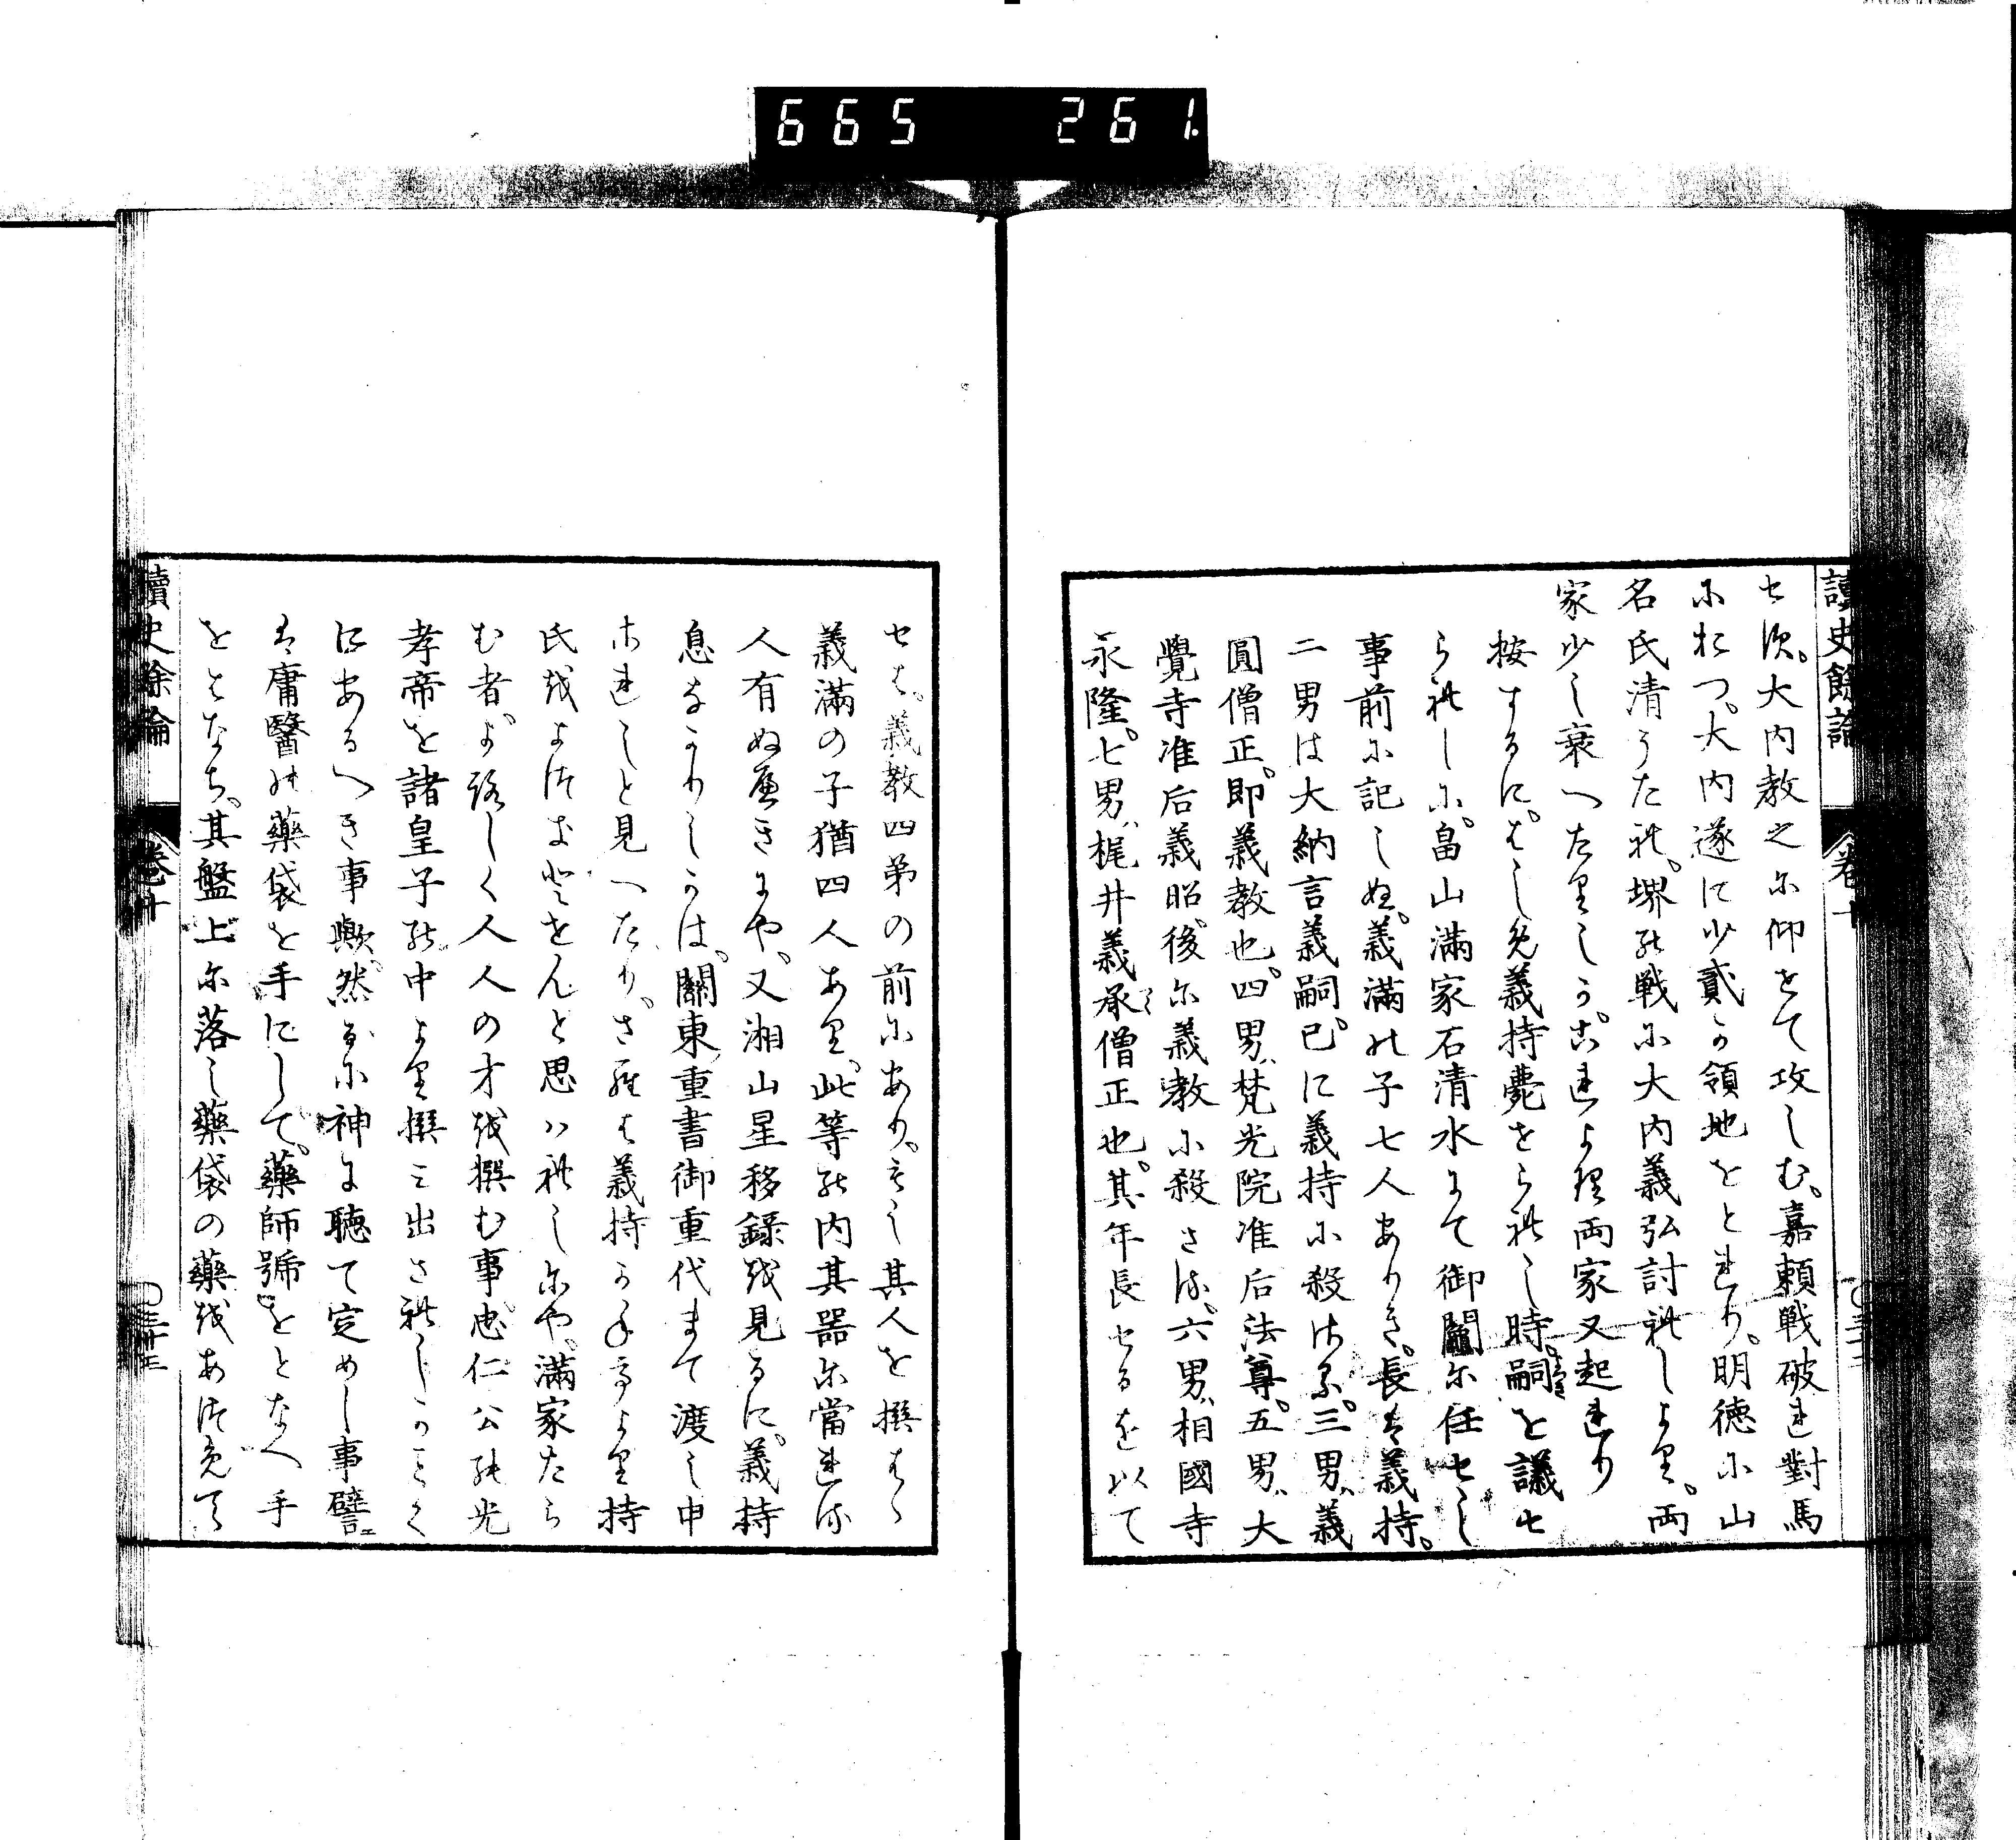 665 261
讀史餘論 卷十
セす。大内教之に仰をて攻しむ。嘉頼戦破れ對馬
におつ。大内遂に少貳か領地をとれり。明徳に山
名氏清うたれ。堺の戦に大内義弘討れしより。両
家少し衰へたりしか。これより両家又起れり
按するに。はしめ義持薨せられし時。嗣を議せ
られしに。畠山滿家石清水にて御鬮に任せし
事前に記しぬ。義滿の子七人ありき。長は義持。
二男は大納言義嗣。已に義持に殺さる。三男、義
圓僧正。即義教也。四男、梵光院准后法尊。五男、大
覺寺准后義昭。後に義教に殺さる。六男、相國寺
永隆。七男、梶井義承僧正也。其年長せるを以て
せは。義教四弟の前にあり。もし其人を撰はゝ
義滿の子猶四人あり。此等の内其器に當れる
人有ぬへきにや、又湘山星移録を見るに。義持
息なかりしかは。關東、重書御重代まて渡し申
されしと見へたり。されは義持の手より持
氏をよつきとせんと思はれしにや。滿家たら
む者。よろしく人人の才を撰む事。忠仁公の光
孝帝を諸皇子の中より撰ミ出されしかことく
にあるへき事歟。然るに神に聴て定めし事。譬ヘ
は庸醫の藥袋を手にして。藥師號をとなへ手
をとなち。其盤上に落し藥袋の藥をあつめて
讀史餘論 卷十